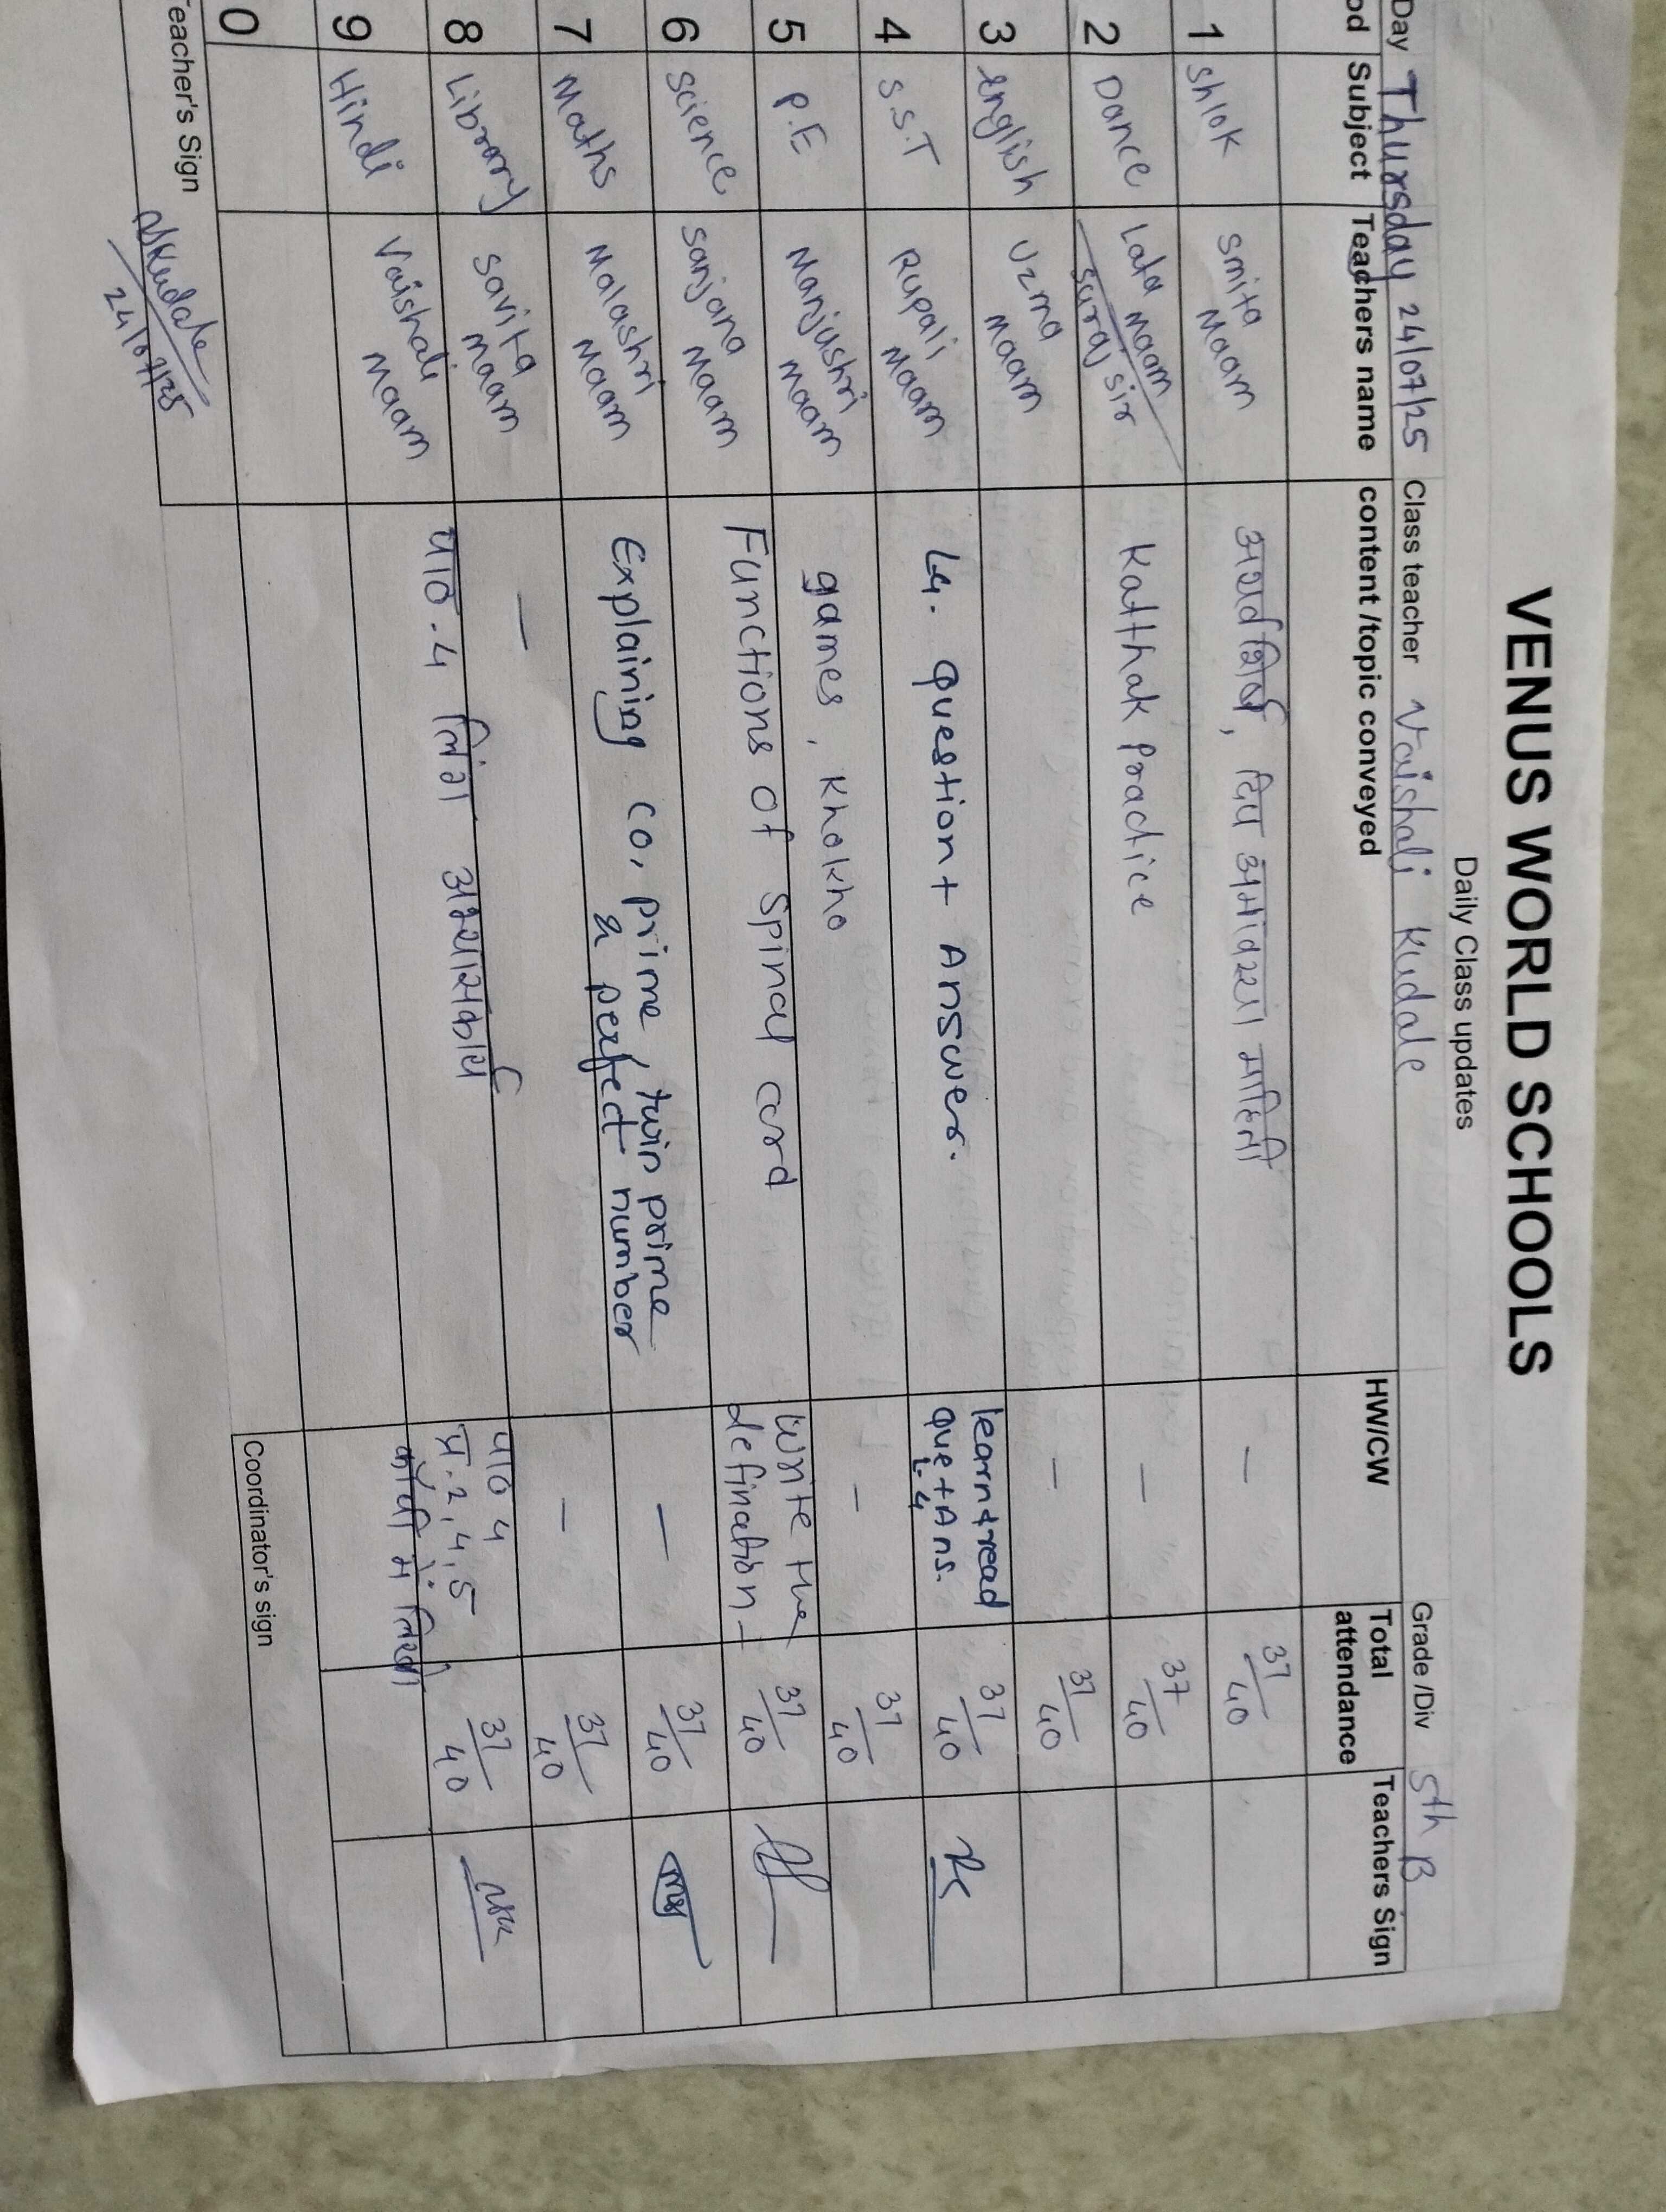 VENUS WORLD SCHOOLS
Daily Class updates
Day Thursday 24/07/25 Class teacher Vaishali Kudale Grade /Div 5th B
od Subject Teachers name content /topic conveyed HW/CW Total attendance Teachers Sign
1 Shlok Smita Maam दिप अमावस्या माहिती - 37/40
2 Dance Lata Maam Suraj sir Katthak Practice - 37/40
3 English Uzma Maam - 37/40
4 S.S.T Rupali Maam L4. Question + Answer. learn & read que + Ans. L.4 37/40
5 P.E Manjushri Maam games, Khokho - 37/40
6 Science Sanjana Maam Functions of Spinal card Write the defination 37/40
7 Maths Malashri Maam Explaining co, prime, twin prime & perfect number - 37/40
8 Library Savita Maam - - 37/40
9 Hindi Vaishali Maam पाठ-4 लिंग अभ्यासकार्य पाठ 4 प्र. 2, 4, 5 कॉपी में लिखो 37/40
0
Teacher's Sign 24/07/25 Coordinator's sign